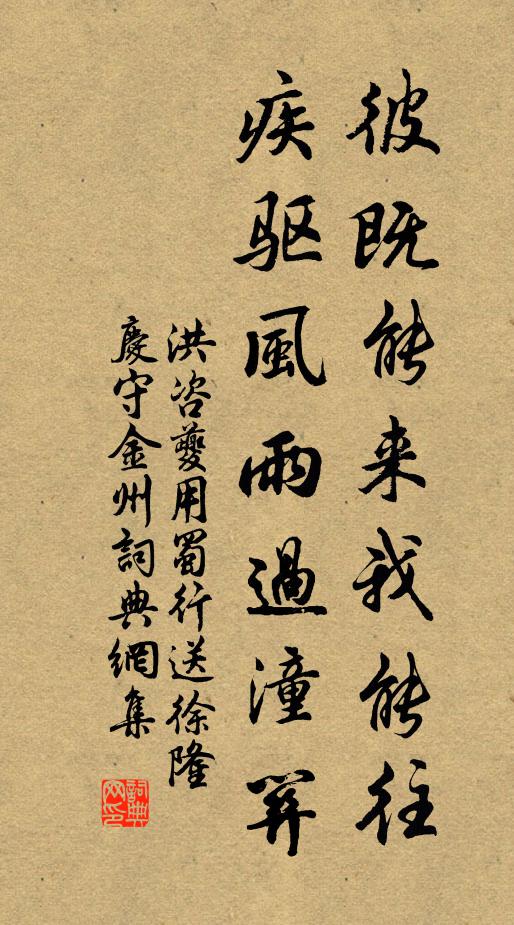 彼既能来我能往
疾驱風雨過潼关
洪咨夔用蜀行送徐隆
慶守金州詞典網集
詞典网印